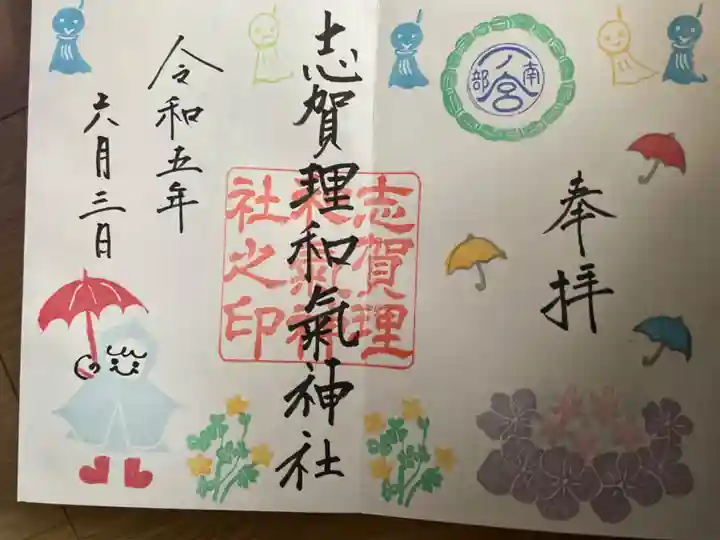 南部
一ノ宮
奉拝
志賀理和氣神社
志賀理
和氣神
社之印
令和五年
六月三日